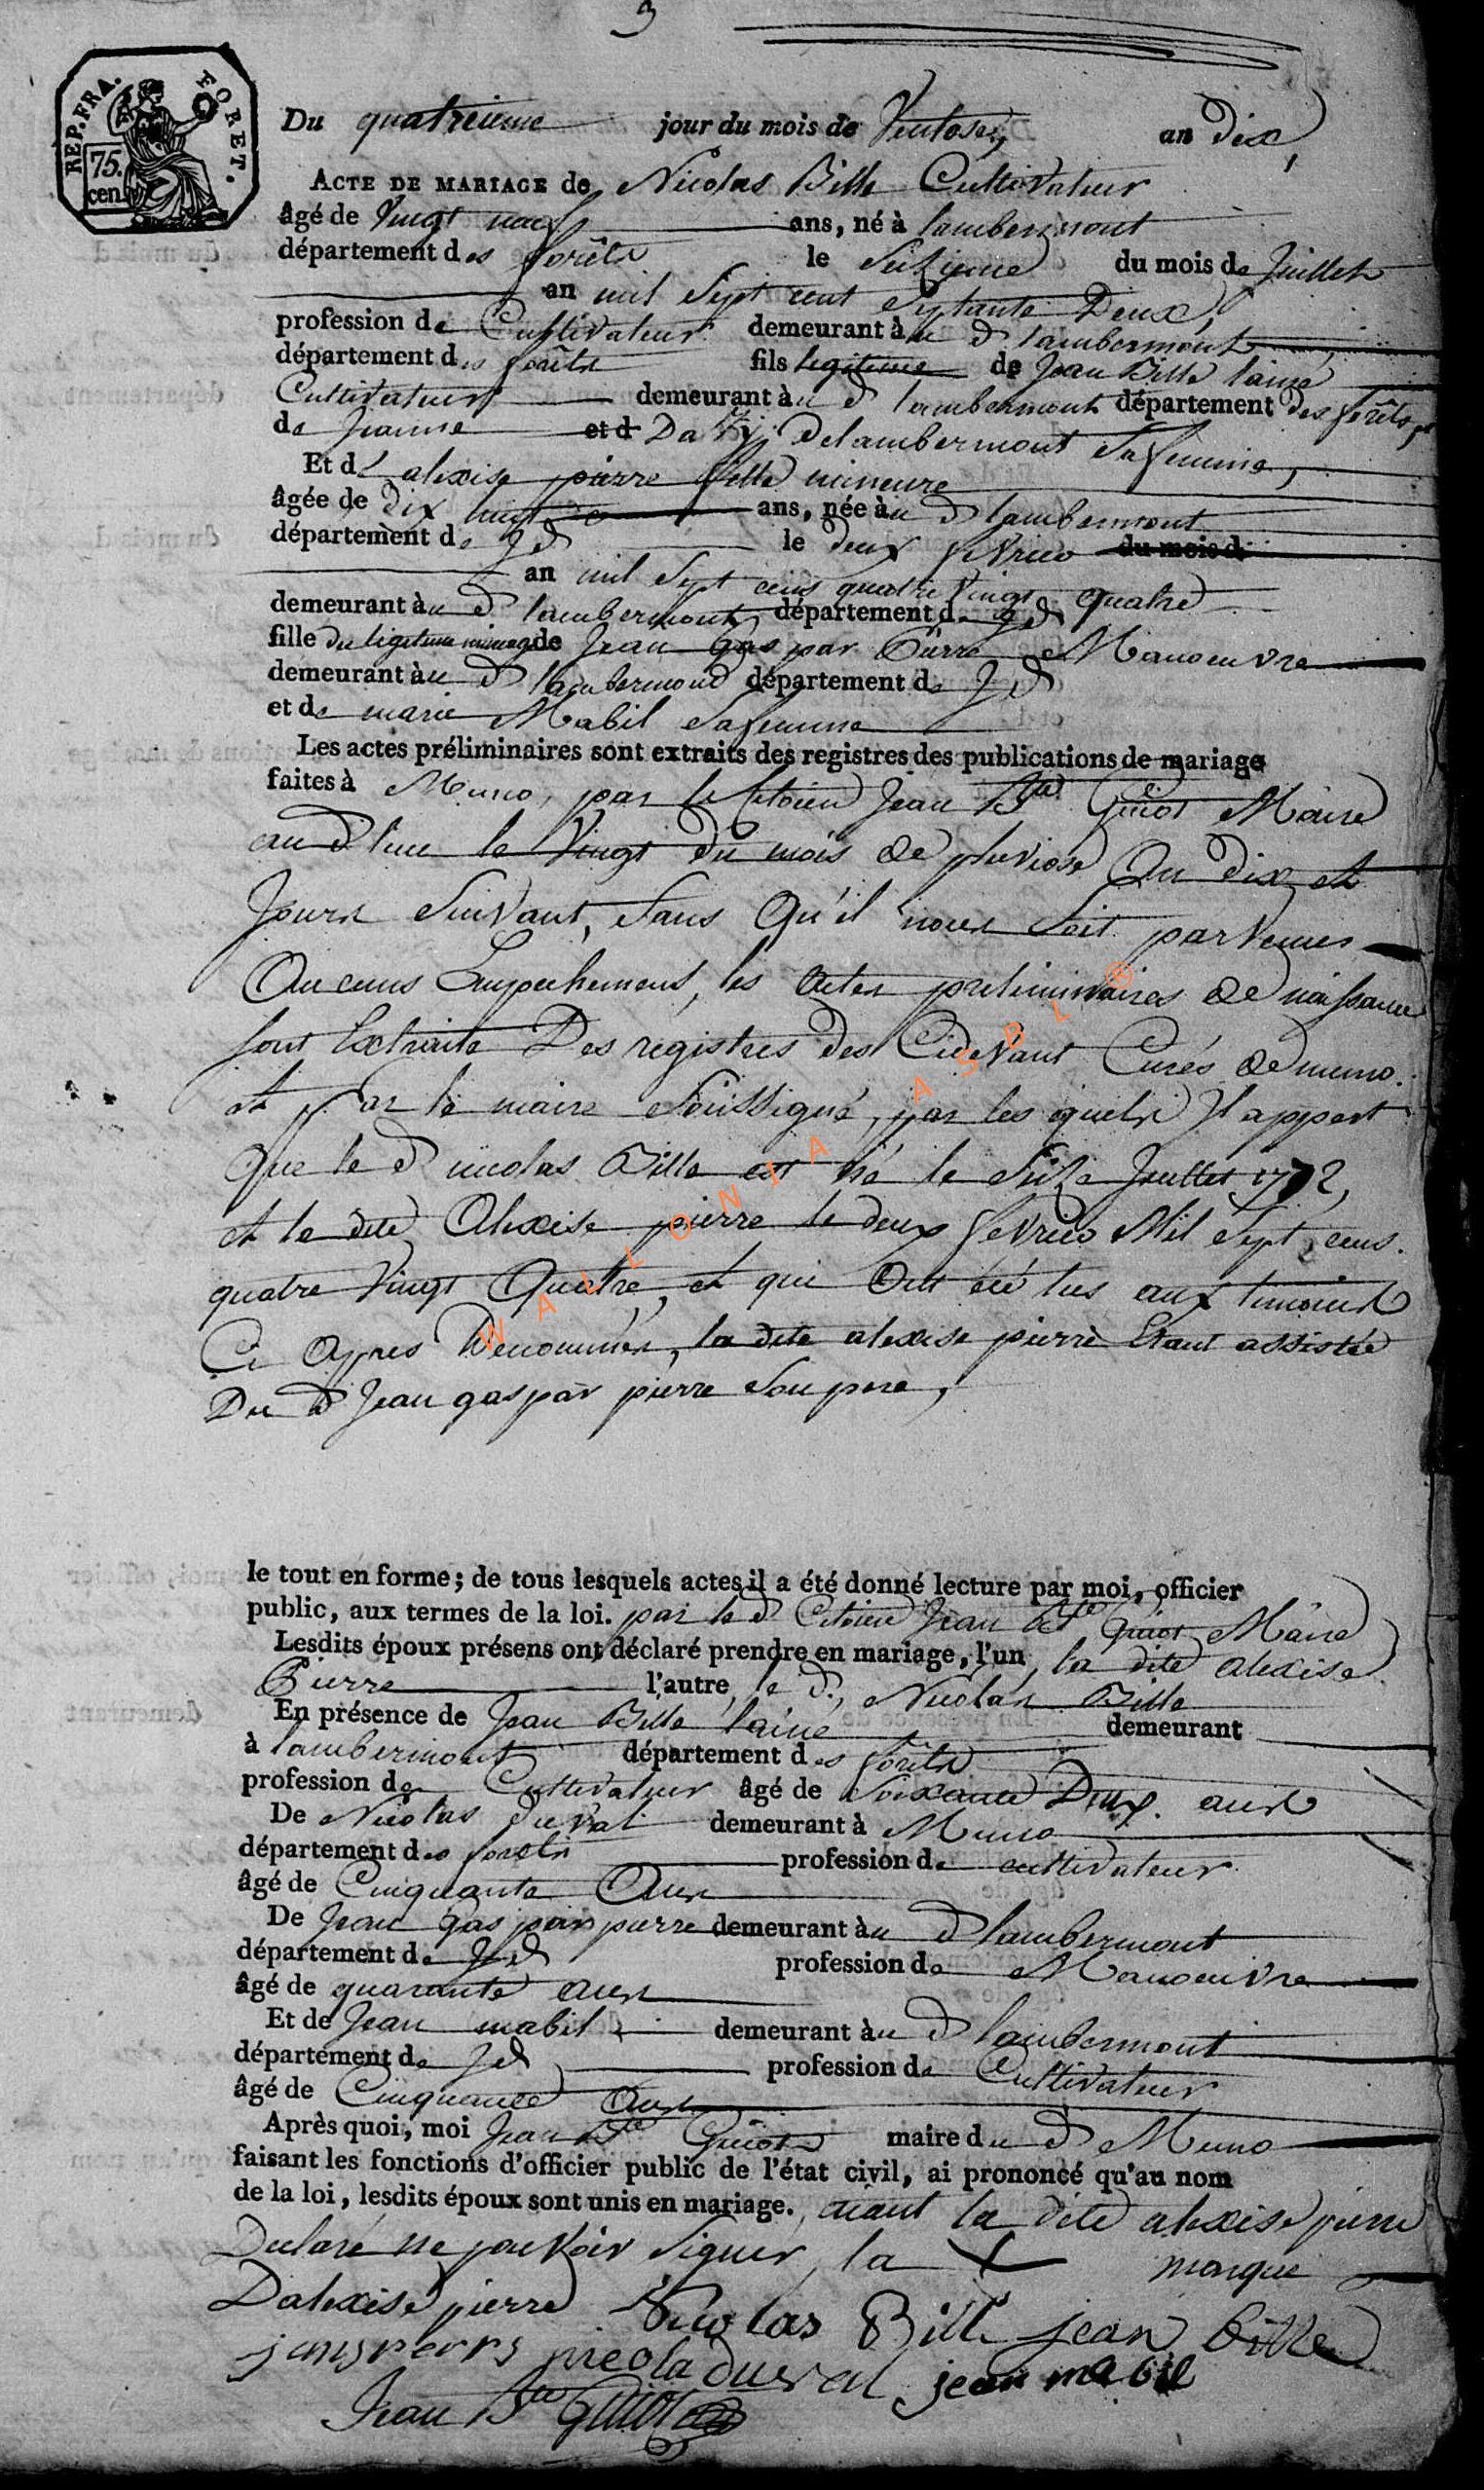 3
REP. FRA. FORET.
75. cen.
Du quatrieme jour du mois de Ventose, an dix,
ACTE DE MARIAGE de Nicolas Bille Cultivateur
âgé de Vingt neuf ans, né à lambermont
département des forêts le Seizieme du mois de Juillet
an mil Sept cent Septante Deux,
profession de Cultivateur demeurant au d lambermont
département des forêts fils legitime de Jean Bille lainé
Cultivateur demeurant au d lambermont département des forêts,
de Jeanne et d Delambermont Sa femme,
Et d' alexise pierre fille mineure
âgée de dix huit ans, née au d lambermont
département de le deux fevrier du mois d
an mil Sept cens quatre Vingt quatre
demeurant au d lambermont, département de
fille de legitime mineure de Jean Gaspar Pierre Manoeuvre
demeurant au d lambermond département de
et de marie Mabil Safemme
Les actes préliminaires sont extraits des registres des publications de mariage
faites à Muno, par le Citoien Jean Bte Guiot Maire
au d lieu le Vingt du mois de pluviose An dix et
Jours Suivant, Sans Qu'il nous Soit parvenues
Aucuns Empechemens, les Actes preliminaires de naissance
Sont Extraits Des registres des Cidevant Curés de muno.
et par le maire Soussigné, par les quels Il appert
Que le d nicolas Bille est né le Seize Juillet 1772,
et le dite Alexise pierre le deux fevrier Mil Sept cens.
quatre Vingt Quatre, et qui Ont été lus aux temoins
Ci Apres Denommés, la dite alexise pierre Etant assistée
Du d Jean gaspar pierre Son pere,
WALLONIA ASBL ®
le tout en forme; de tous lesquels actes il a été donné lecture par moi, officier
public, aux termes de la loi. par le d Citoien Jean Bte Guiot Maire
Lesdits époux présens ont déclaré prendre en mariage, l'un, la dite alexise
Pierre l'autre, le d, Nicolas Bille
En présence de Jean Bille lainé demeurant
à lambermont département des forêts
profession de Cultivateur âgé de Soixante Deux ans
De Nicolas Duval demeurant à Muno
département des forets profession de cultivateur
âgé de Cinquante Ans
De Jean Gaspar pierre demeurant au d lambermont
département de profession de Manoeuvre
âgé de quarante ans
Et de Jean mabil demeurant au d lambermont
département de profession de Cultivateur
âgé de Cinquante Ans
Après quoi, moi Jean Bte Guiot maire du d Muno
faisant les fonctions d'officier public de l'état civil, ai prononcé qu'au nom
de la loi, lesdits époux sont unis en mariage. aiant la dite alexise pierre
Declaré ne pouvoir Signer, la X marque
Dalexise pierre Nicolas Bille jean bille
nicola duval jean mabil
Jean Bte Guiot